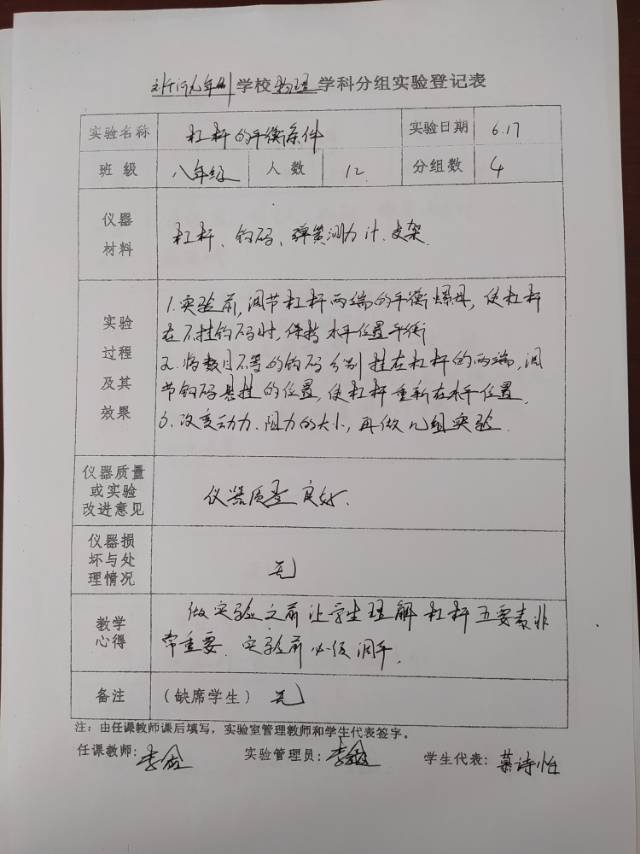 九年制学校物理学科分组实验登记表
实验名称 杠杆的平衡条件 实验日期 6.17
班级 八年级 人数 12 分组数 4
仪器
材料
杠杆、钩码、弹簧测力计、支架
实验
过程
及其
效果
1.实验前,调节杠杆两端的平衡螺母,使杠杆
在不挂钩码时,保持水平位置平衡
2.将数目不等的钩码分别挂在杠杆的两端,调
节钩码悬挂的位置,使杠杆重新在水平位置.
3.改变动力、阻力的大小,再做几组实验.
仪器质量
或实验
改进意见
仪器质量良好.
仪器损
坏与处
理情况
无
教学
心得
做实验之前让学生理解杠杆五要素非
常重要.实验前必须调平.
备注 (缺席学生) 无
注:由任课教师课后填写,实验室管理教师和学生代表签字。
任课教师: 实验管理员: 学生代表: